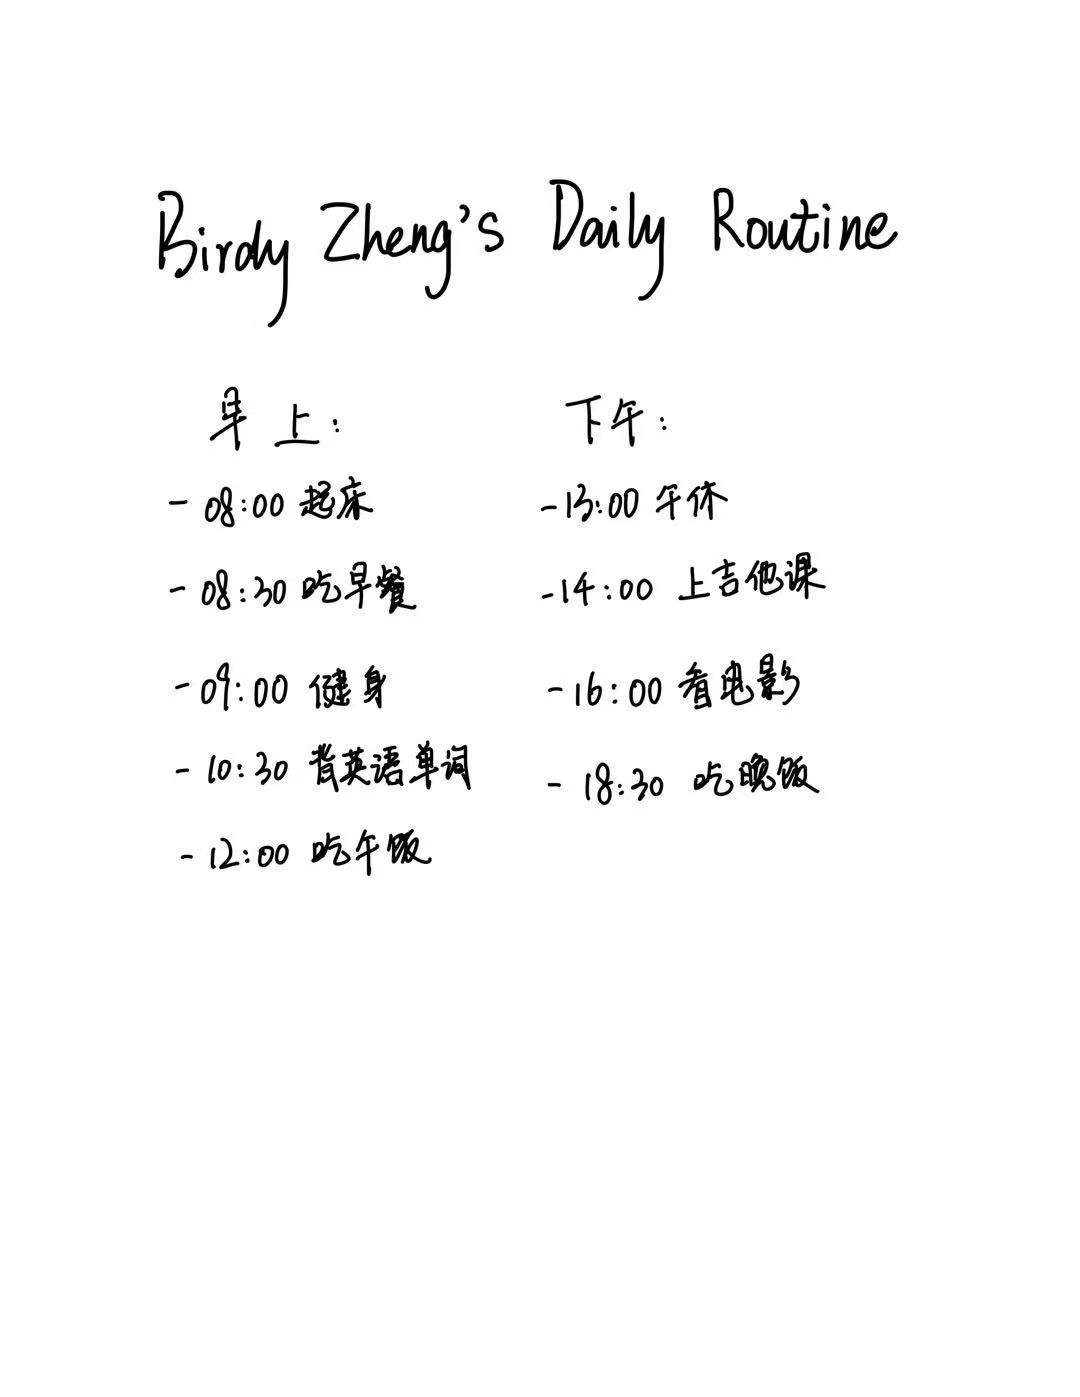 Birdy Zheng's Daily Routine
早上：
- 08:00 起床
- 08:30 吃早餐
- 09:00 健身
- 10:30 背英语单词
- 12:00 吃午饭
下午：
- 13:00 午休
- 14:00 上吉他课
- 16:00 看电影
- 18:30 吃晚饭